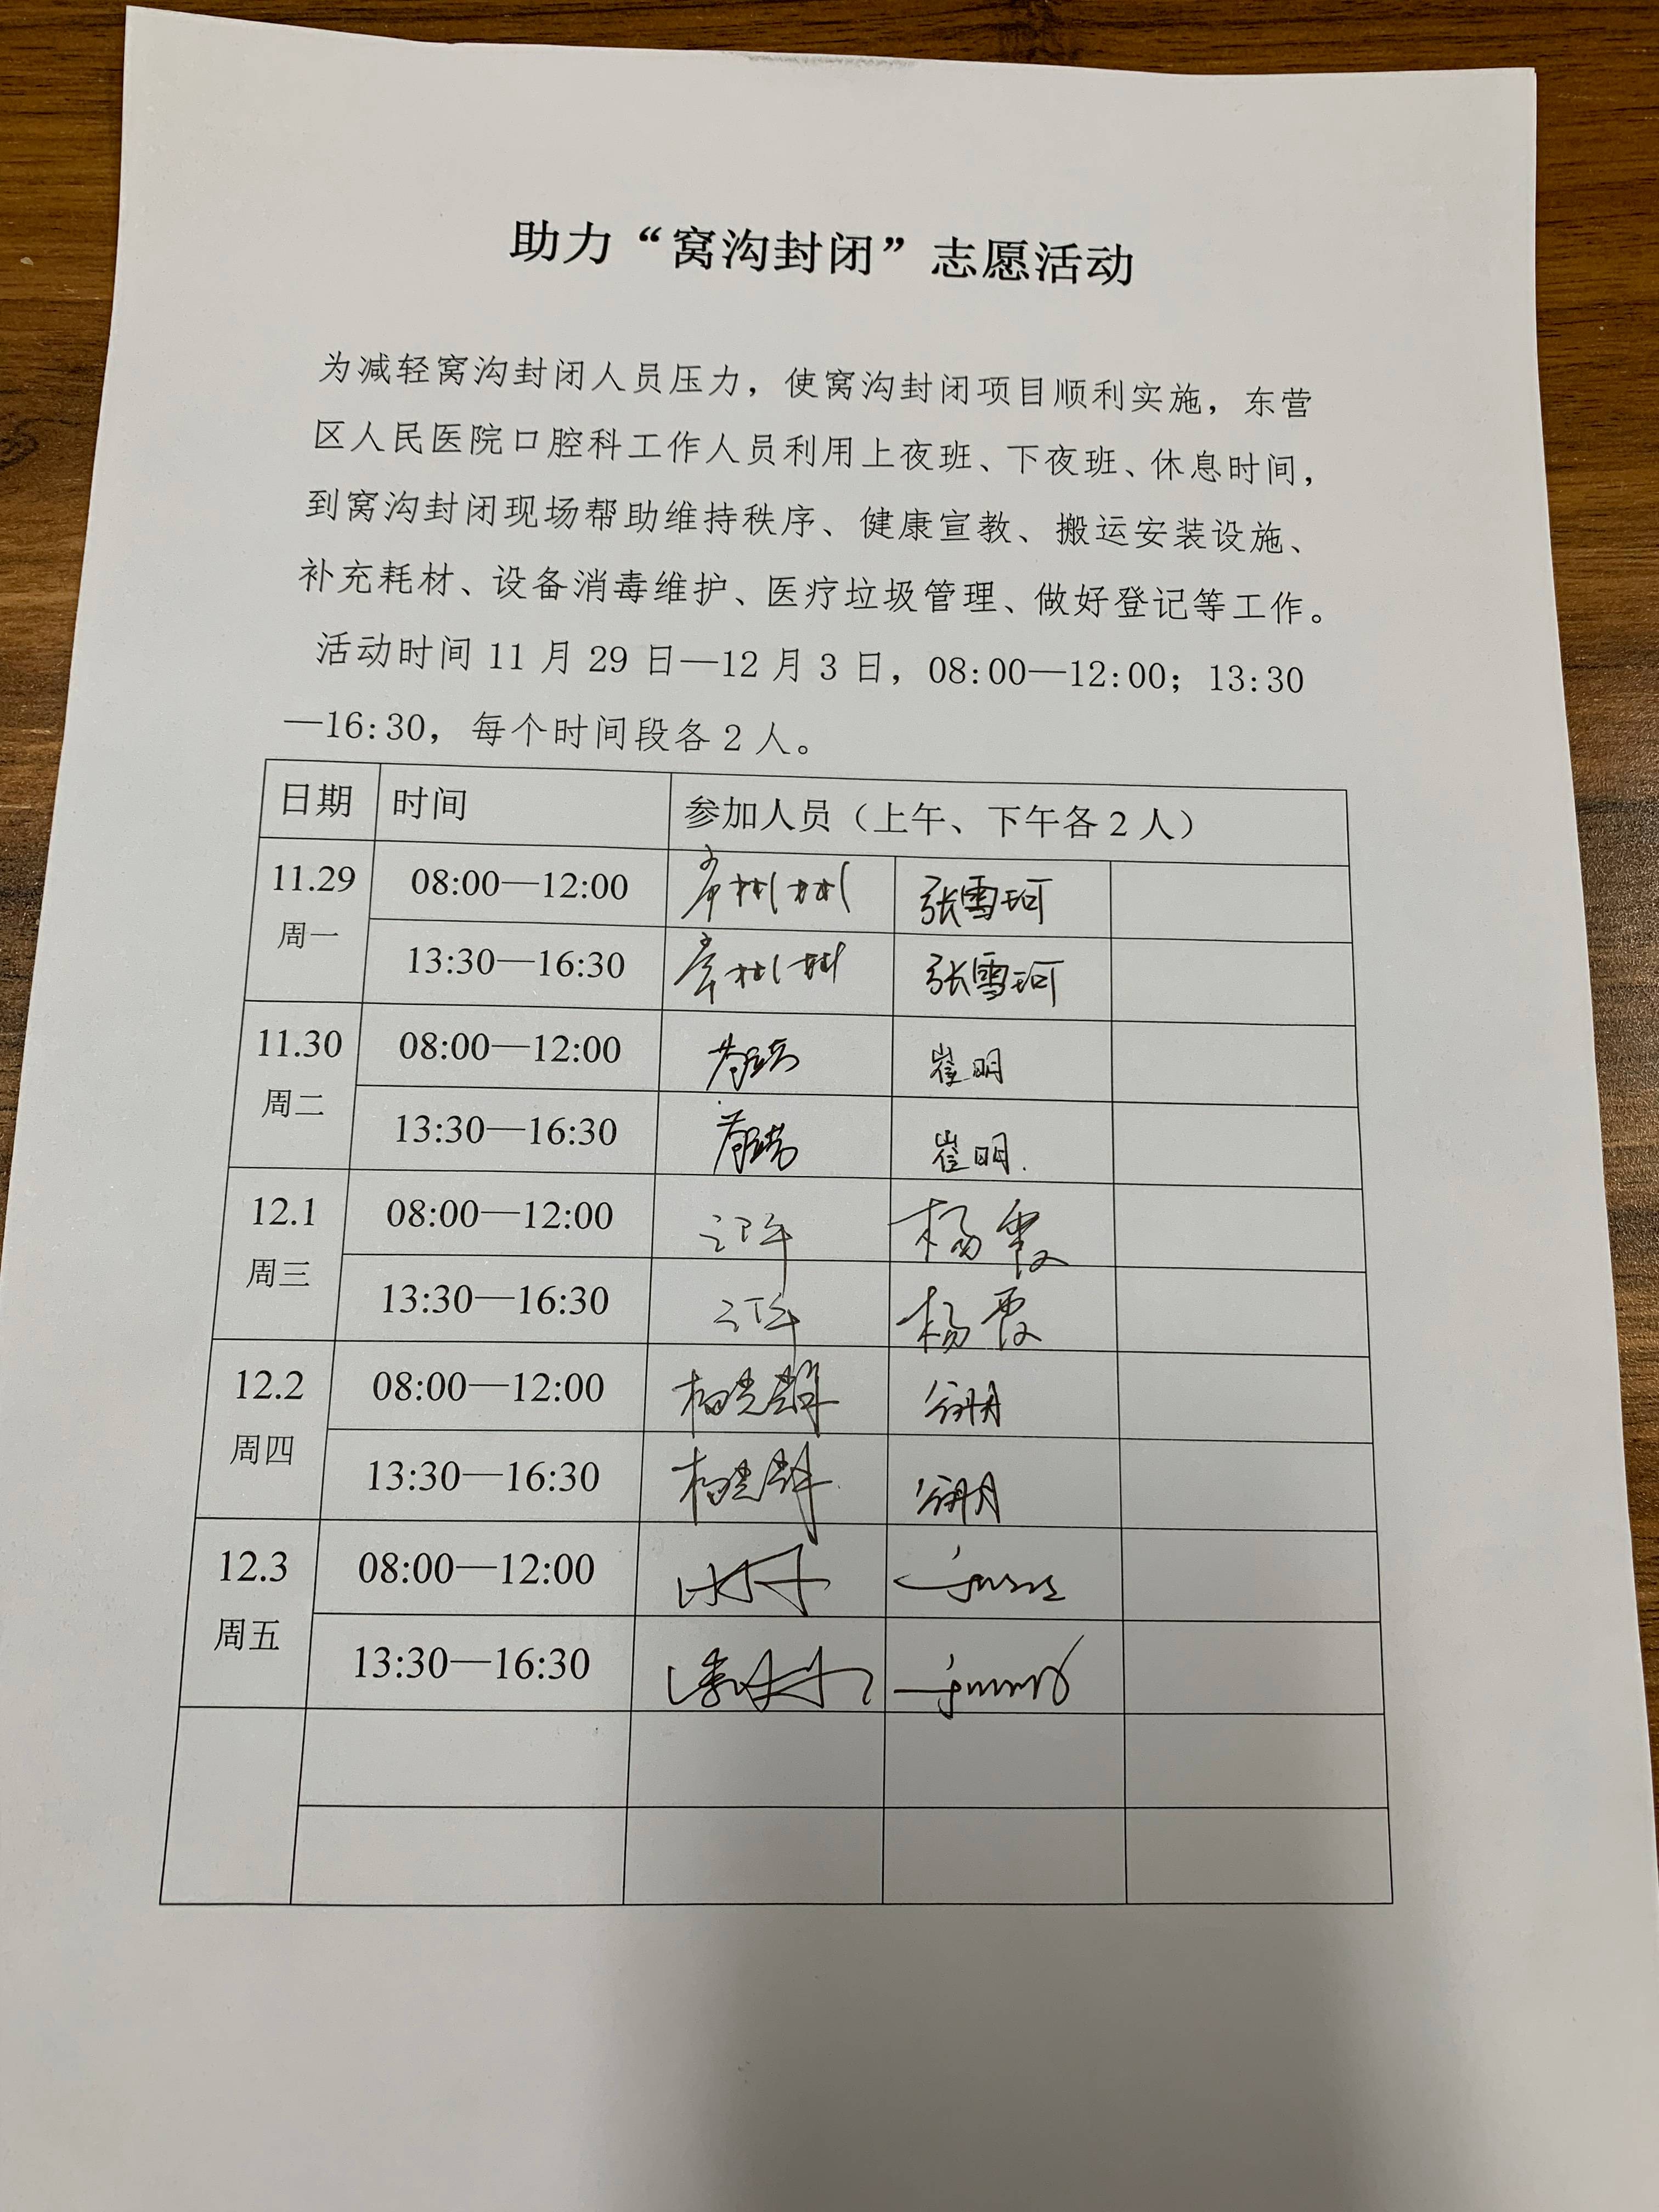 助力“窝沟封闭”志愿活动
为减轻窝沟封闭人员压力，使窝沟封闭项目顺利实施，东营
区人民医院口腔科工作人员利用上夜班、下夜班、休息时间，
到窝沟封闭现场帮助维持秩序、健康宣教、搬运安装设施、
补充耗材、设备消毒维护、医疗垃圾管理、做好登记等工作。
活动时间 11 月 29 日—12 月 3 日，08:00—12:00；13:30
—16:30，每个时间段各 2 人。
日期 时间 参加人员（上午、下午各 2 人）
11.29 08:00—12:00 张雪珂
周一
13:30—16:30 张雪珂
11.30 08:00—12:00 崔明
周二
13:30—16:30 崔明
12.1 08:00—12:00 杨霞
周三
13:30—16:30 杨霞
12.2 08:00—12:00
周四
13:30—16:30
12.3 08:00—12:00
周五
13:30—16:30